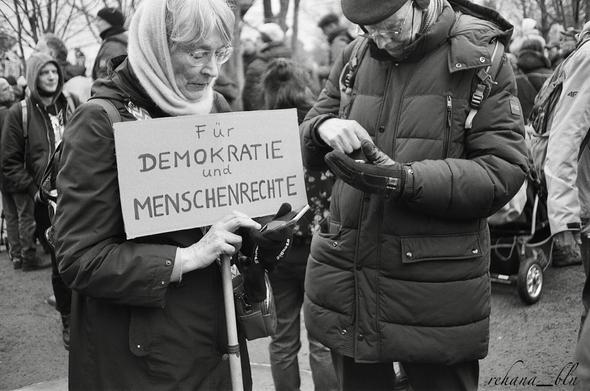 Für
DEMOKRATIE
und
MENSCHENRECHTE
rehana_bln